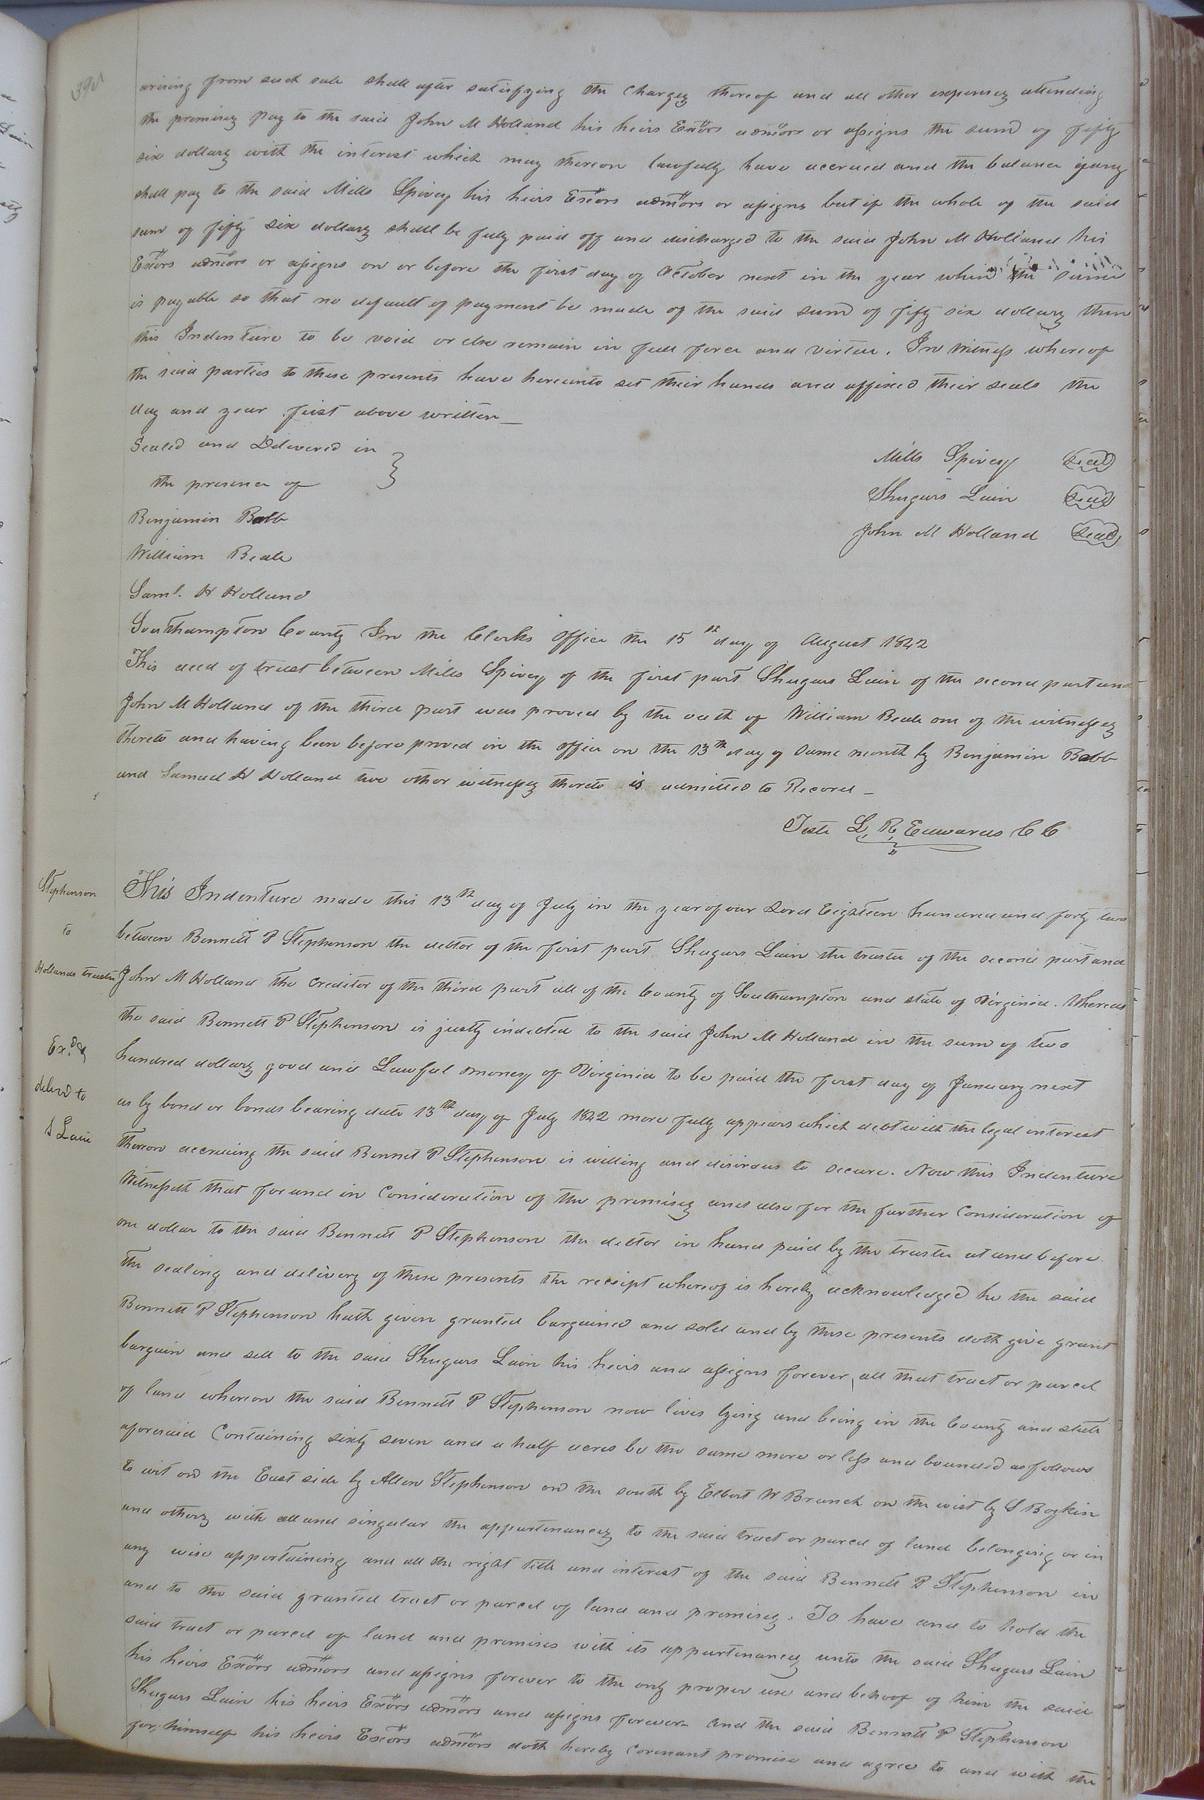 arising from such sale shall after satisfying the charges thereof and all other expenses attending
the premises pay to the said John M Holland his heirs Exōrs admōrs or assigns the sum of fifty
six dollars with the interest which may thereon lawfully have accrued and the balance if any
shall pay to the said Mills Spivey his heirs Exōrs admōrs or assigns but if the whole of the said
sum of fifty six dollars shall be fully paid off and discharged to the said John M Holland his
Exōrs admōrs or assigns on or before the first day of October next in the year when the same
is payable so that no default of payment be made of the said sum of fifty six dollars then
this Indenture to be void or else remain in full force and virtue. In witness whereof
the said parties to these presents have hereunto set their hands and affixed their seals the
day and year first above written_
Sealed and Delivered in
the presence of
Mills Spivey Seal
Shugars Lain Seal
John M Holland Seal
Benjamin Babb
William Beale
Saml. H Holland
Southampton County In the Clerks Office the 15th day of August 1842
This deed of trust between Mills Spivey of the first part Shugars Lain of the second part and
John M Holland of the third part was proved by the oath of William Beale one of the witnesses
thereto and having been before proved in the office on the 13th day of same month by Benjamin Babb
and Samuel H Holland two other witnesses thereto is admitted to Record_
Teste L. R. Edwards C C
Stephenson
to
Hollands trustee
Exd. &
delivd to
S Lain
This Indenture made this 13th day of July in the year of our Lord Eighteen hundred and forty two
between Bennett P Stephenson the debtor of the first part Shugars Lain the trustee of the second part and
John M Holland the creditor of the third part all of the County of Southampton and state of Virginia. Whereas
the said Bennett P Stephenson is justly indebted to the said John M Holland in the sum of two
hundred dollars good and Lawful money of Virginia to be paid the first day of January next
as by bond or bonds bearing date 13th day of July 1842 more fully appears which debt with the legal interest
thereon accruing the said Bennet P Stephenson is willing and disirous to secure. Now this Indenture
Witnesseth that for and in Consideration of the premises and also for the further Consideration of
one dollar to the said Bennett P Stephenson the debtor in hand paid by the trustee at and before
the sealing and delivery of these presents the receipt whereof is hereby acknowledged he the said
Bennett P Stephenson hath given granted bargained and sold and by these presents doth give grant
bargain and sell to the said Shugars Lain his heirs and assigns forever, all that tract or parcel
of land whereon the said Bennett P Stephenson now lives lying and being in the County and state
aforesaid Containing sixty seven and a half acres be the same more or less and bounded as follows
to wit on the East side by Allen Stephenson on the south by Elbert W Branch on the wist by S Boykin
and others with all and singular the appurtenances to the said tract or parcel of land belonging or in
any wise appertaining and all the right title and interest of the said Bennett P Stephenson in
and to the said granted tract or parcel of land and premises. To have and to hold the
said tract or parcel of land and premises with its appurtenances unto the said Shugars Lain
his heirs Exōrs admōrs and assigns forever to the only proper use and behoof of him the said
Shugars Lain his heirs Exōrs admōrs and assigns forever and the said Bennett P Stephenson
for himself his heirs Exōrs admōrs doth hereby covenant promise and agree to and with the